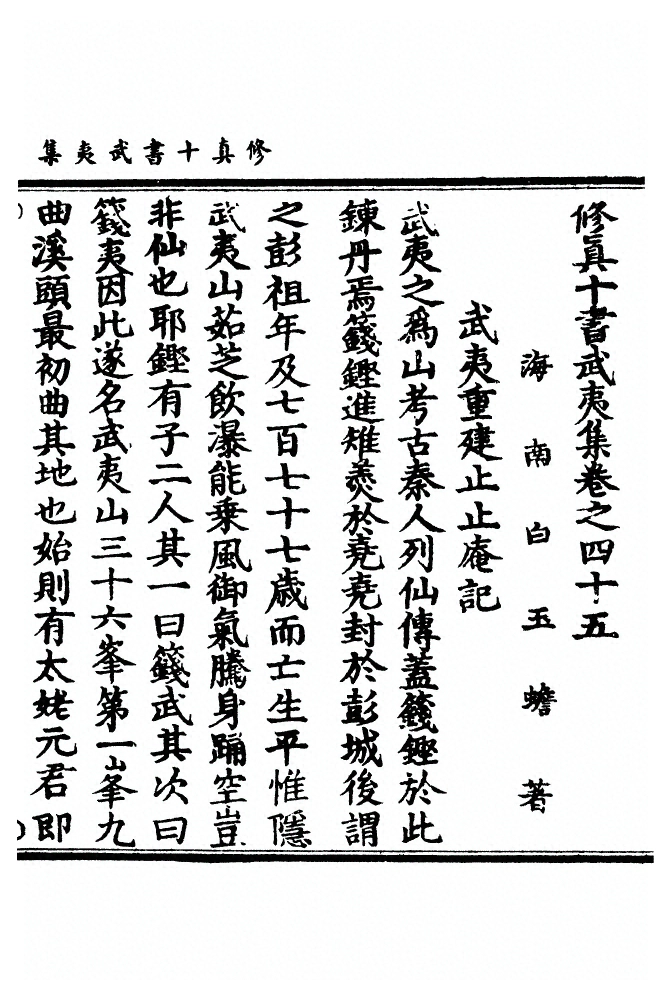 修真十書武夷集
修真十書武夷集卷之四十五
海南白玉蟾著
武夷重建止止庵記
武夷之爲山考古秦人列仙傳蓋籛鏗於此
鍊丹焉籛鏗進雉羹於堯堯封於彭城後謂
之彭祖年及七百七十七歲而亡生平惟隱
武夷山茹芝飲瀑能乗風御氣騰身踊空豈
非仙也耶鏗有子二人其一曰籛武其次曰
籛夷因此遂名武夷山三十六峯第一峯九
曲溪頭最初曲其地也始則有太姥元君即